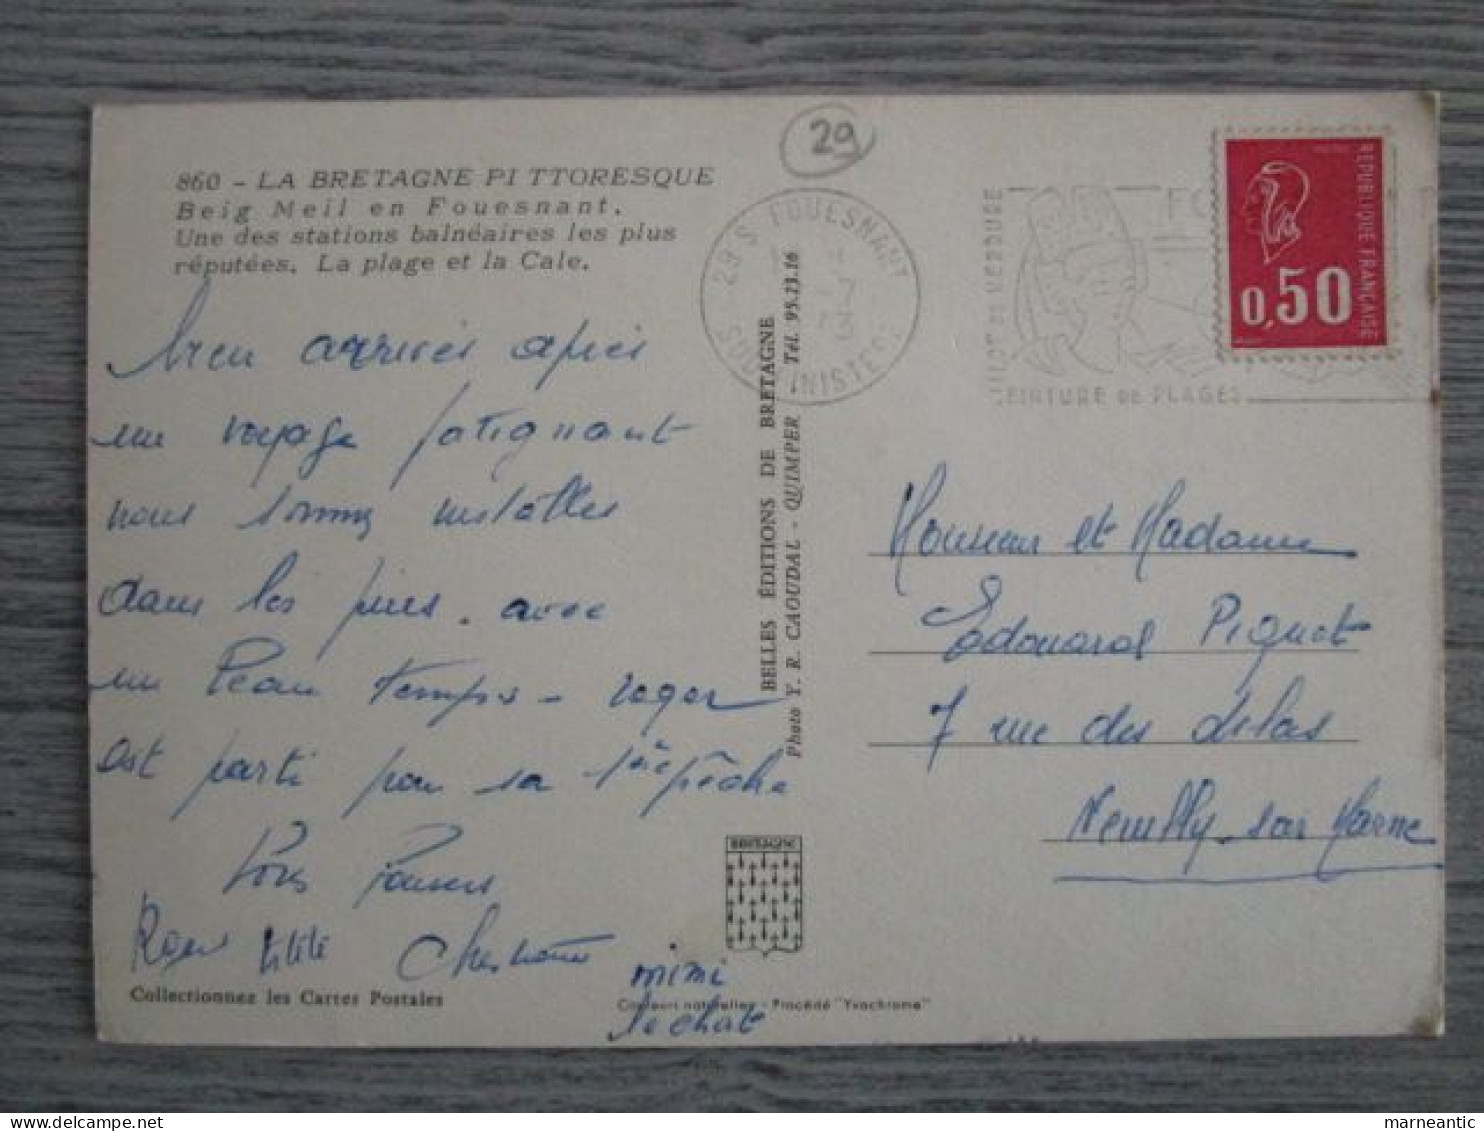 29
860 - LA BRETAGNE PI TTORESQUE
Beig Meil en Fouesnant.
Une des stations balnéaires les plus
réputées. La plage et la Cale.
bien arrivés après
un voyage fatignant
nous somms installes
dans les pins. avec
un beau temps - roger
est parti pour sa 1ère pêche
Bons Baisers
Roger Christiane mimi
le chat
Collectionnez les Cartes Postales
Couleurs naturelles - Procédé "Yvochrome"
BELLES ÉDITIONS DE BRETAGNE
Photo Y. R. CAOUDAL - QUIMPER Tél. 95-23-16
BRETAGNE
29 S FOUESNANT
SUD FINISTERE
ILOT DE VERDURE
CEINTURE DE PLAGES
REPUBLIQUE FRANÇAISE
0,50
Monsieur et Madame
Edouard Piquet
7 rue des Lilas
Neuilly sur Marne
marneantic